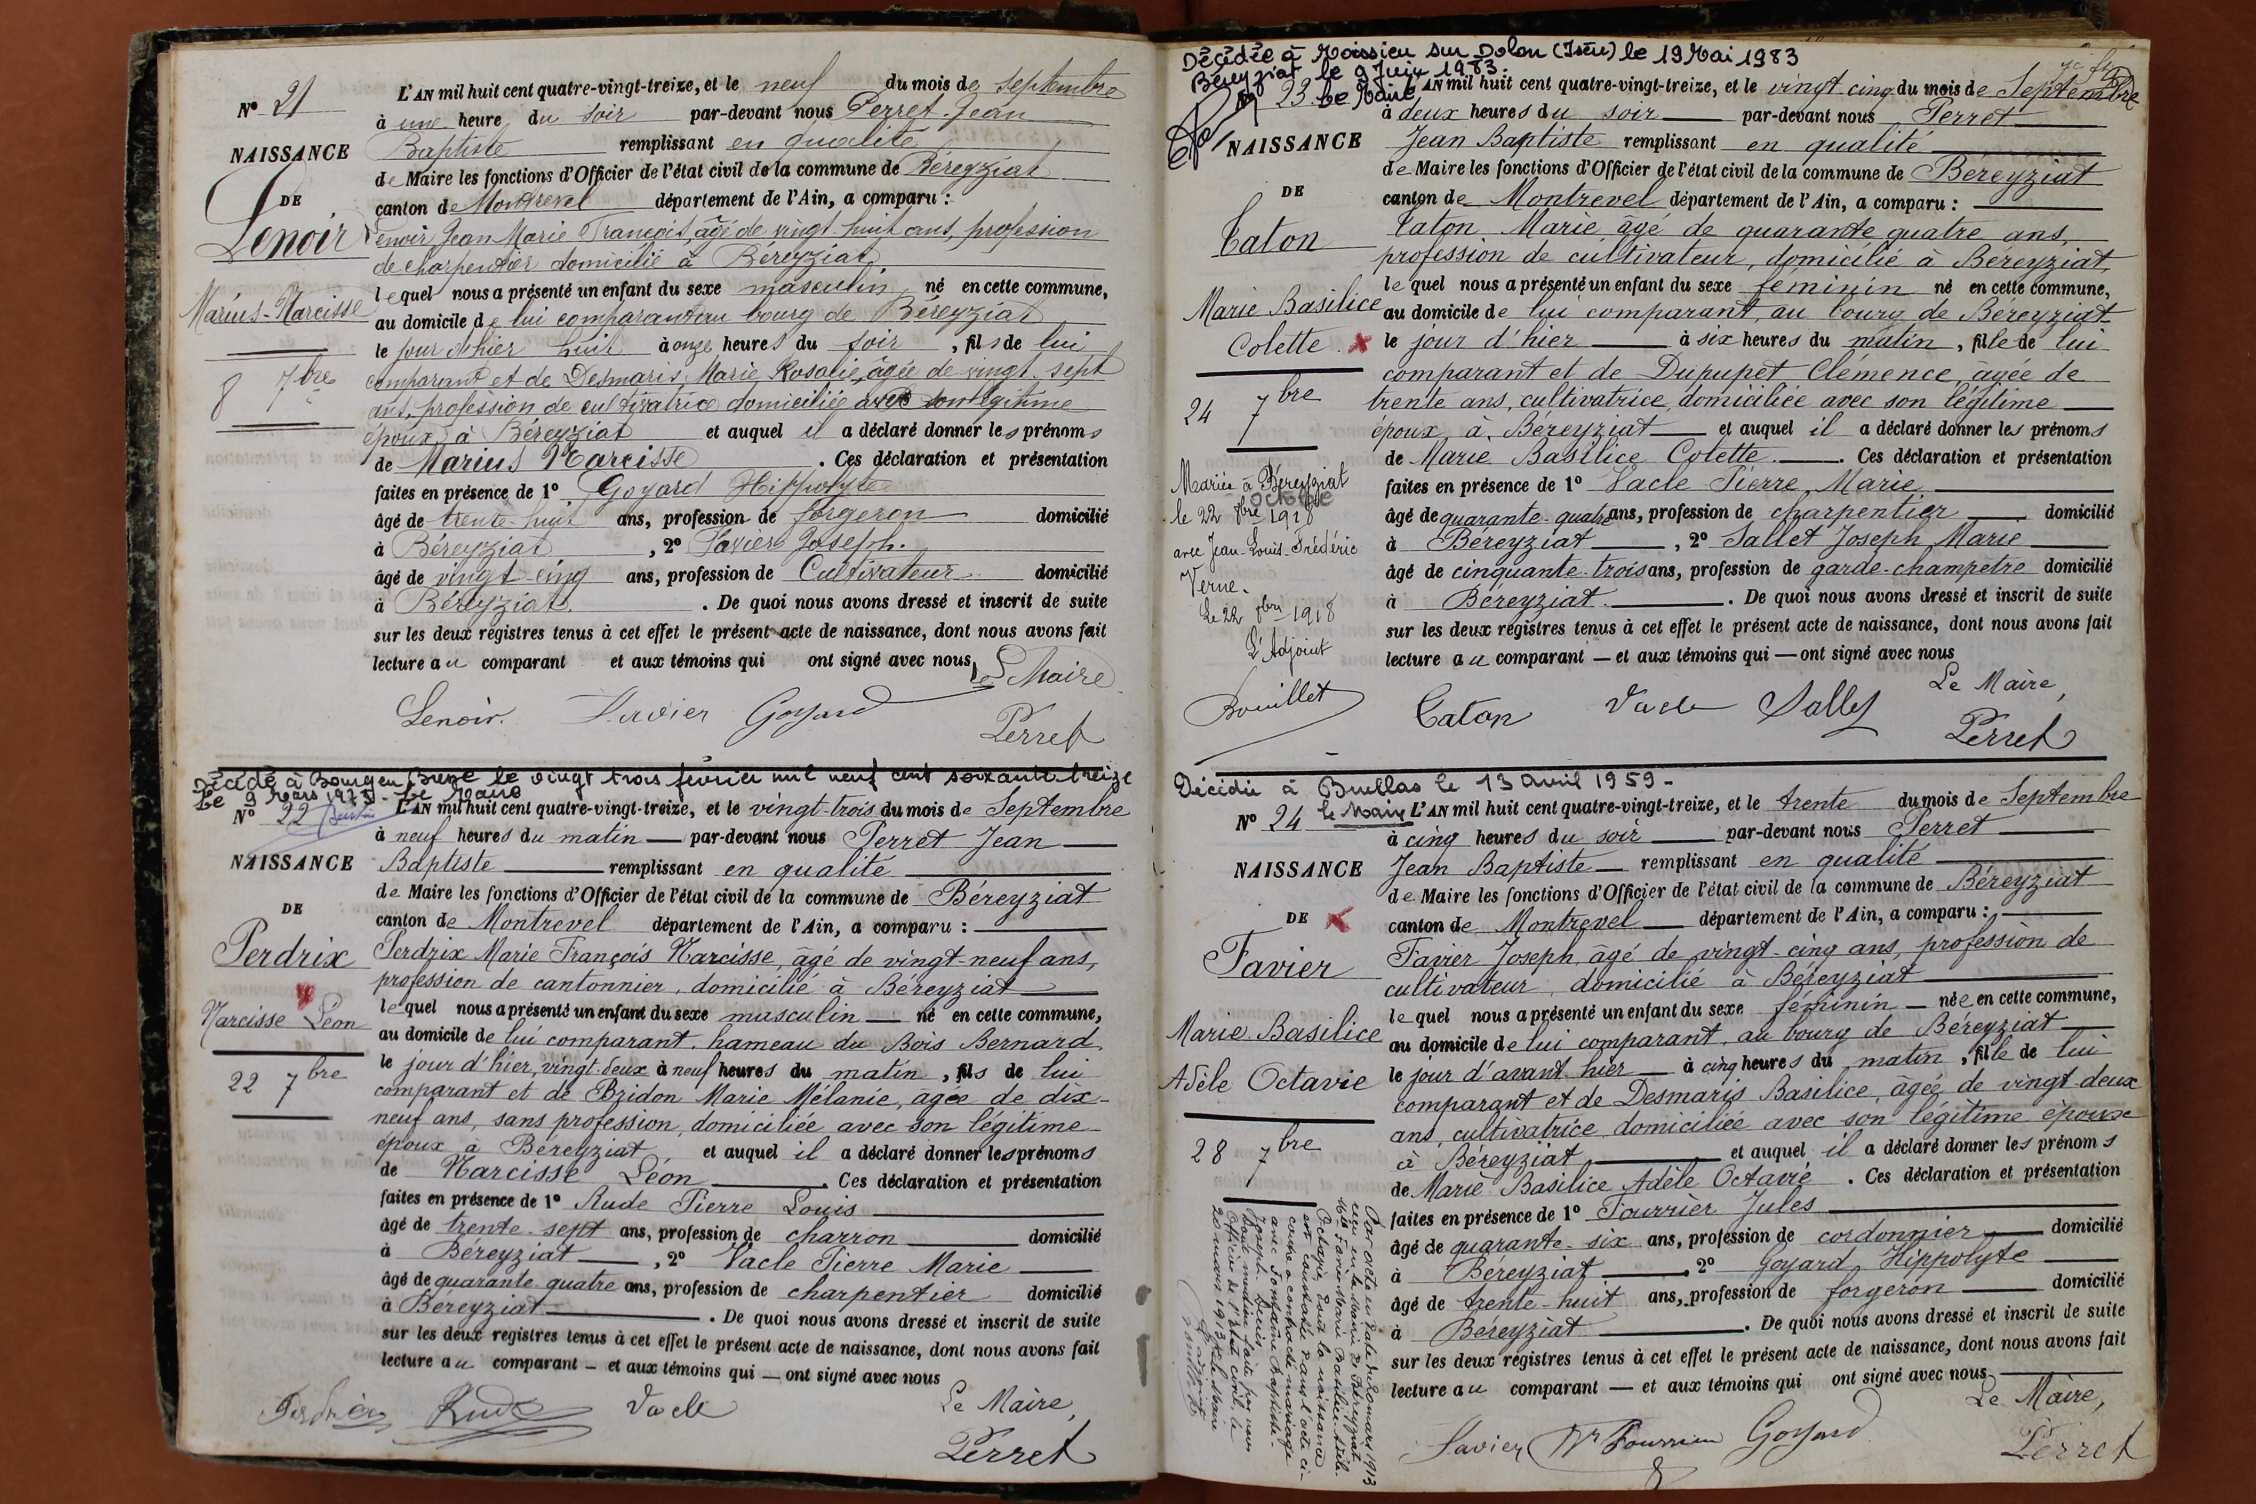 N° 21
NAISSANCE
DE
Lenoir
Marius-Narcisse
8 7bre
L'AN mil huit cent quatre-vingt-treize, et le neuf du mois de septembre
à une heure du soir par-devant nous Perret Jean
Baptiste remplissant en qualité
de Maire les fonctions d'Officier de l'état civil de la commune de Béreyziat
canton de Montrevel département de l'Ain, a comparu :
Lenoir Jean Marie François, âgé de vingt huit ans, profession
de charpentier domicilié à Béreyziat
lequel nous a présenté un enfant du sexe masculin, né en cette commune,
au domicile de lui comparant au bourg de Béreyziat
le jour d'hier huit à onze heures du soir, fils de lui
comparant et de Desmaris, Marie Rosalie, âgée de vingt sept
ans, profession de cultivatrice domiciliée avec son légitime
époux à Béreyziat et auquel il a déclaré donner les prénoms
de Marius Narcisse. Ces déclaration et présentation
faites en présence de 1° Goyard Hippolyte
âgé de trente-huit ans, profession de forgeron domicilié
à Béreyziat, 2° Favier Joseph.
âgé de vingt-cinq ans, profession de Cultivateur domicilié
à Béreyziat. De quoi nous avons dressé et inscrit de suite
sur les deux registres tenus à cet effet le présent acte de naissance, dont nous avons fait
lecture au comparant et aux témoins qui ont signé avec nous
Le Maire
Lenoir. Favier Goyard
Perret
Décédé à Bourg en Bresse le vingt trois février mil neuf cent soixante treize
Le 9 Mars 1973 - Le Maire
N° 22
NAISSANCE
DE
Perdrix
Narcisse Léon
22 7bre
L'AN mil huit cent quatre-vingt-treize, et le vingt-trois du mois de Septembre
à neuf heures du matin par-devant nous Perret Jean
Baptiste remplissant en qualité
de Maire les fonctions d'Officier de l'état civil de la commune de Béreyziat
canton de Montrevel département de l'Ain, a comparu :
Perdrix Marie François Narcisse, âgé de vingt-neuf ans,
profession de cantonnier, domicilié à Béreyziat
lequel nous a présenté un enfant du sexe masculin né en cette commune,
au domicile de lui comparant, hameau du Bois Bernard,
le jour d'hier, vingt-deux à neuf heures du matin, fils de lui
comparant et de Bridon Marie Mélanie, agée de dix-
neuf ans, sans profession, domiciliée avec son légitime
époux à Béreyziat et auquel il a déclaré donner les prénoms
de Narcisse Léon. Ces déclaration et présentation
faites en présence de 1° Rude Pierre Louis
âgé de trente-sept ans, profession de charron domicilié
à Béreyziat, 2° Vacle Pierre Marie
âgé de quarante quatre ans, profession de charpentier domicilié
à Béreyziat. De quoi nous avons dressé et inscrit de suite
sur les deux registres tenus à cet effet le présent acte de naissance, dont nous avons fait
lecture au comparant - et aux témoins qui - ont signé avec nous
Le Maire,
Perdrix Rude Vacle
Perret
Décédée à Moissieu sur Dolon (Isère) le 19 Mai 1983
Béreyziat le 9 Juin 1983.
Le Maire
N° 23
NAISSANCE
DE
Caton
Marie Basilice
Colette
24 7bre
Mariée à Béreyziat
octobre
le 22 8bre 1918
avec Jean-Louis-Frédéric
Verne.
Le 22 8bre 1918
L'Adjoint
Bouillet
L'AN mil huit cent quatre-vingt-treize, et le vingt-cinq du mois de Septembre
à deux heures du soir par-devant nous Perret
Jean Baptiste remplissant en qualité
de Maire les fonctions d'Officier de l'état civil de la commune de Béreyziat
canton de Montrevel département de l'Ain, a comparu :
Caton Marie âgé de quarante quatre ans,
profession de cultivateur, domicilié à Béreyziat,
lequel nous a présenté un enfant du sexe féminin né en cette commune,
au domicile de lui comparant, au bourg de Béreyziat
le jour d'hier à six heures du matin, fille de lui
comparant et de Dupupet Clémence, agée de
trente ans, cultivatrice, domiciliée avec son légitime
époux à Béreyziat et auquel il a déclaré donner les prénoms
de Marie Basilice Colette. Ces déclaration et présentation
faites en présence de 1° Vacle Pierre Marie
âgé de quarante-quatre ans, profession de charpentier domicilié
à Béreyziat, 2° Sallet Joseph Marie
âgé de cinquante-trois ans, profession de garde-champêtre domicilié
à Béreyziat. De quoi nous avons dressé et inscrit de suite
sur les deux registres tenus à cet effet le présent acte de naissance, dont nous avons fait
lecture au comparant - et aux témoins qui - ont signé avec nous
Le Maire,
Caton Vacle Sallet
Perret
Décédée à Buellas le 13 avril 1959 -
le Maire
N° 24
NAISSANCE
DE
Favier
Marie Basilice
Adèle Octavie
28 7bre
L'AN mil huit cent quatre-vingt-treize, et le trente du mois de Septembre
à cinq heures du soir par-devant nous Perret
Jean Baptiste remplissant en qualité
de Maire les fonctions d'Officier de l'état civil de la commune de Béreyziat
canton de Montrevel département de l'Ain, a comparu :
Favier Joseph, âgé de vingt-cinq ans, profession de
cultivateur, domicilié à Béreyziat
lequel nous a présenté un enfant du sexe féminin - née en cette commune,
au domicile de lui comparant, au bourg de Béreyziat
le jour d'avant hier à cinq heures du matin, fille de lui
comparant et de Desmaris Basilice, âgée de vingt-deux
ans, cultivatrice, domiciliée avec son légitime époux
à Béreyziat et auquel il a déclaré donner les prénoms
de Marie Basilice Adèle Octavie. Ces déclaration et présentation
faites en présence de 1° Fourrier Jules
âgé de quarante-six ans, profession de cordonnier domicilié
à Béreyziat, 2° Goyard Hippolyte
âgé de trente-huit ans, profession de forgeron domicilié
à Béreyziat. De quoi nous avons dressé et inscrit de suite
sur les deux registres tenus à cet effet le présent acte de naissance, dont nous avons fait
lecture au comparant - et aux témoins qui ont signé avec nous
Le Maire,
Favier Fourrier Goyard
Perret
Par acte en date du 20 mars 1913
reçu en la Mairie de Béreyziat
Mlle Favier Marie Basilice Adèle
Octavie, dont la naissance
est constatée dans l'acte ci-
contre a contracté mariage
avec Fontaine Baptiste-
Joseph Louis.
Dont mention faite par nous
Officier de l'Etat civil, le
20 mars 1913